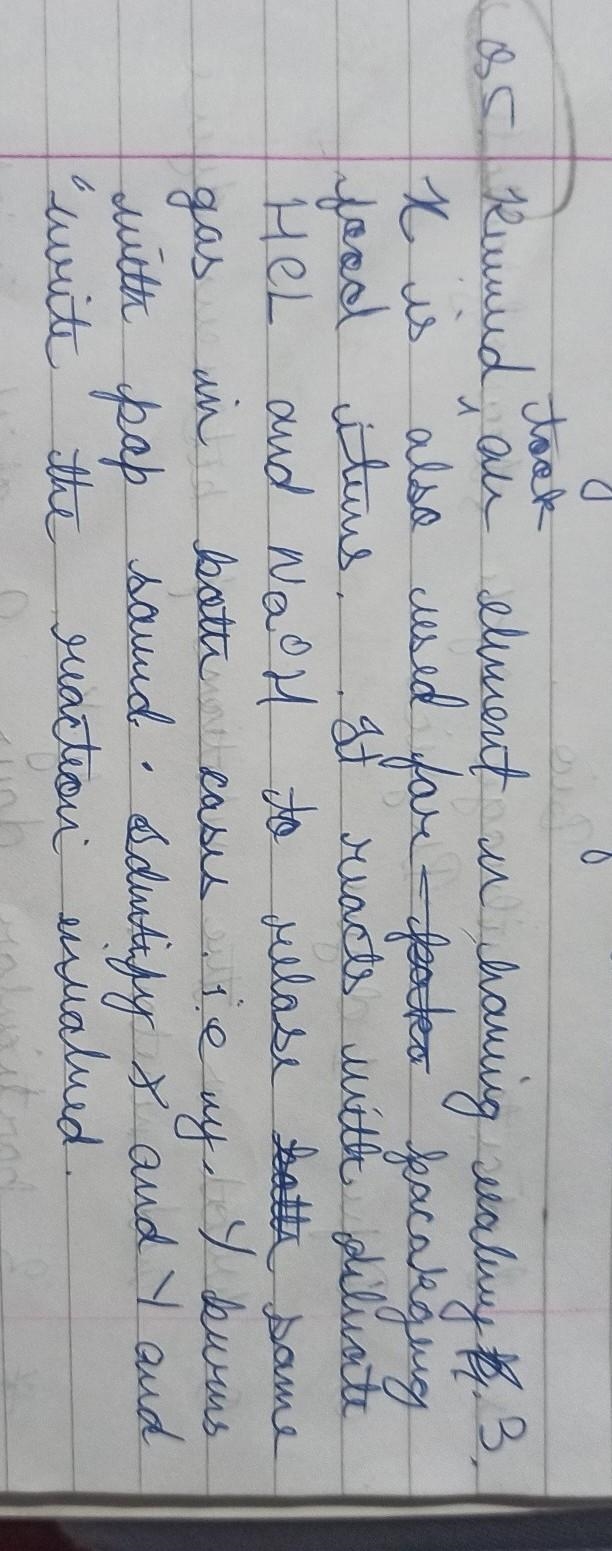 Q5 Remind took an element x having valency 3.
X is also used for packaging
food items. It reacts with dilute
HCL and NaOH to relase same
gas in both cases i.e y. Y burns
with pop sound. Identify X and Y and
write the reaction involved.